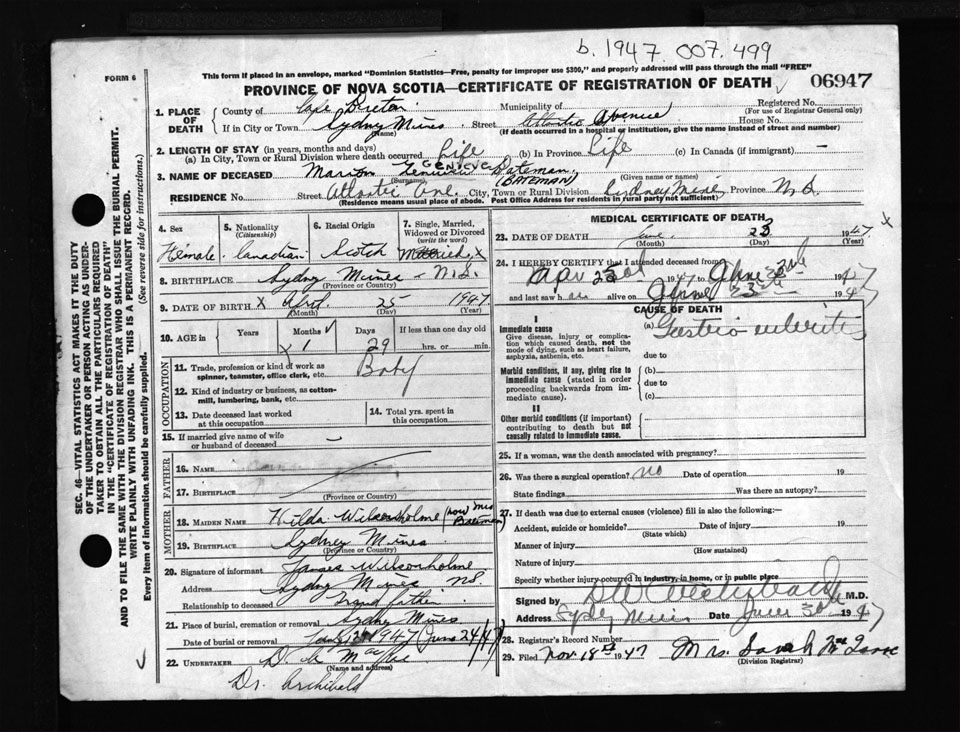 b. 1947. 007. 499
This form if placed in an envelope, marked "Dominion Statistics—Free, penalty for improper use $300," and properly addressed will pass through the mail "FREE"
FORM 6
PROVINCE OF NOVA SCOTIA—CERTIFICATE OF REGISTRATION OF DEATH
06947
1. PLACE OF DEATH
County of Cape Breton Municipality of Registered No.
(For use of Registrar General only)
If in City or Town Sydney Mines Street Atlantic Avenue House No.
(Name) (If death occurred in a hospital or institution, give the name instead of street and number)
2. LENGTH OF STAY (in years, months and days)
(a) In City, Town or Rural Division where death occurred Life (b) In Province Life (c) In Canada (if immigrant) —
GENIEVE
3. NAME OF DECEASED Marion Bateman (BATEMAN)
(Surname) (Given name or names)
RESIDENCE No. Street Atlantic Ave. City, Town or Rural Division Sydney Mines Province N.S.
(Residence means usual place of abode. Post Office Address for residents in rural parts not sufficient)
4. Sex Female
5. Nationality (Citizenship) Canadian
6. Racial Origin Scotch
7. Single, Married, Widowed or Divorced (write the word) X
8. BIRTHPLACE Sydney Mines - N.S.
(Province or Country)
9. DATE OF BIRTH X April 25 1947
(Month) (Day) (Year)
10. AGE in Years Months Days If less than one day old
X 1 29 hrs. or min.
OCCUPATION
11. Trade, profession or kind of work as spinner, teamster, office clerk, etc. Baby
12. Kind of industry or business, as cotton-mill, lumbering, bank, etc.
13. Date deceased last worked at this occupation
14. Total yrs. spent in this occupation
15. If married give name of wife or husband of deceased —
FATHER
16. NAME
17. BIRTHPLACE
(Province or Country)
MOTHER
18. MAIDEN NAME Hilda Wilsonholme (now Mrs Bateman)
19. BIRTHPLACE Sydney Mines
(Province or Country)
20. Signature of informant James Wilsonholme
Address Sydney Mines NS
Relationship to deceased Grand father
21. Place of burial, cremation or removal Sydney Mines
Date of burial or removal 1947 (June 24/47)
22. UNDERTAKER D.
(Name and address)
Dr. Archibald
MEDICAL CERTIFICATE OF DEATH
23. DATE OF DEATH June 23 1947 X
(Month) (Day) (Year)
24. I HEREBY CERTIFY that I attended deceased from
1947 to June 1947
and last saw h alive on June 23 1947
CAUSE OF DEATH
I
Immediate cause (a) Gastro
Give disease, injury or complication which caused death, not the mode of dying, such as heart failure, asphyxia, asthenia, etc.
due to
Morbid conditions, if any, giving rise to immediate cause (stated in order proceeding backwards from immediate cause).
(b)
due to
(c)
II
Other morbid conditions (if important) contributing to death but not causally related to immediate cause.
25. If a woman, was the death associated with pregnancy?
26. Was there a surgical operation? no Date of operation 19
State findings Was there an autopsy?
27. If death was due to external causes (violence) fill in also the following:
Accident, suicide or homicide? Date of injury 19
(State which)
Manner of injury
(How sustained)
Nature of injury
Specify whether injury occurred in industry, in home, or in public place
Signed by M.D.
Address Sydney Mines Date June 30th 1947
28. Registrar's Record Number
29. Filed Nov. 18th 1947 Mrs. Sarah
(Division Registrar)
SEC. 46—VITAL STATISTICS ACT MAKES IT THE DUTY
OF THE UNDERTAKER OR PERSON ACTING AS UNDER-
TAKER TO OBTAIN ALL THE PARTICULARS REQUIRED
IN THE "CERTIFICATE OF REGISTRATION OF DEATH"
AND TO FILE THE SAME WITH THE DIVISION REGISTRAR WHO SHALL ISSUE THE BURIAL PERMIT.
WRITE PLAINLY WITH UNFADING INK. THIS IS A PERMANENT RECORD.
Every item of information should be carefully supplied. (See reverse side for instructions.)